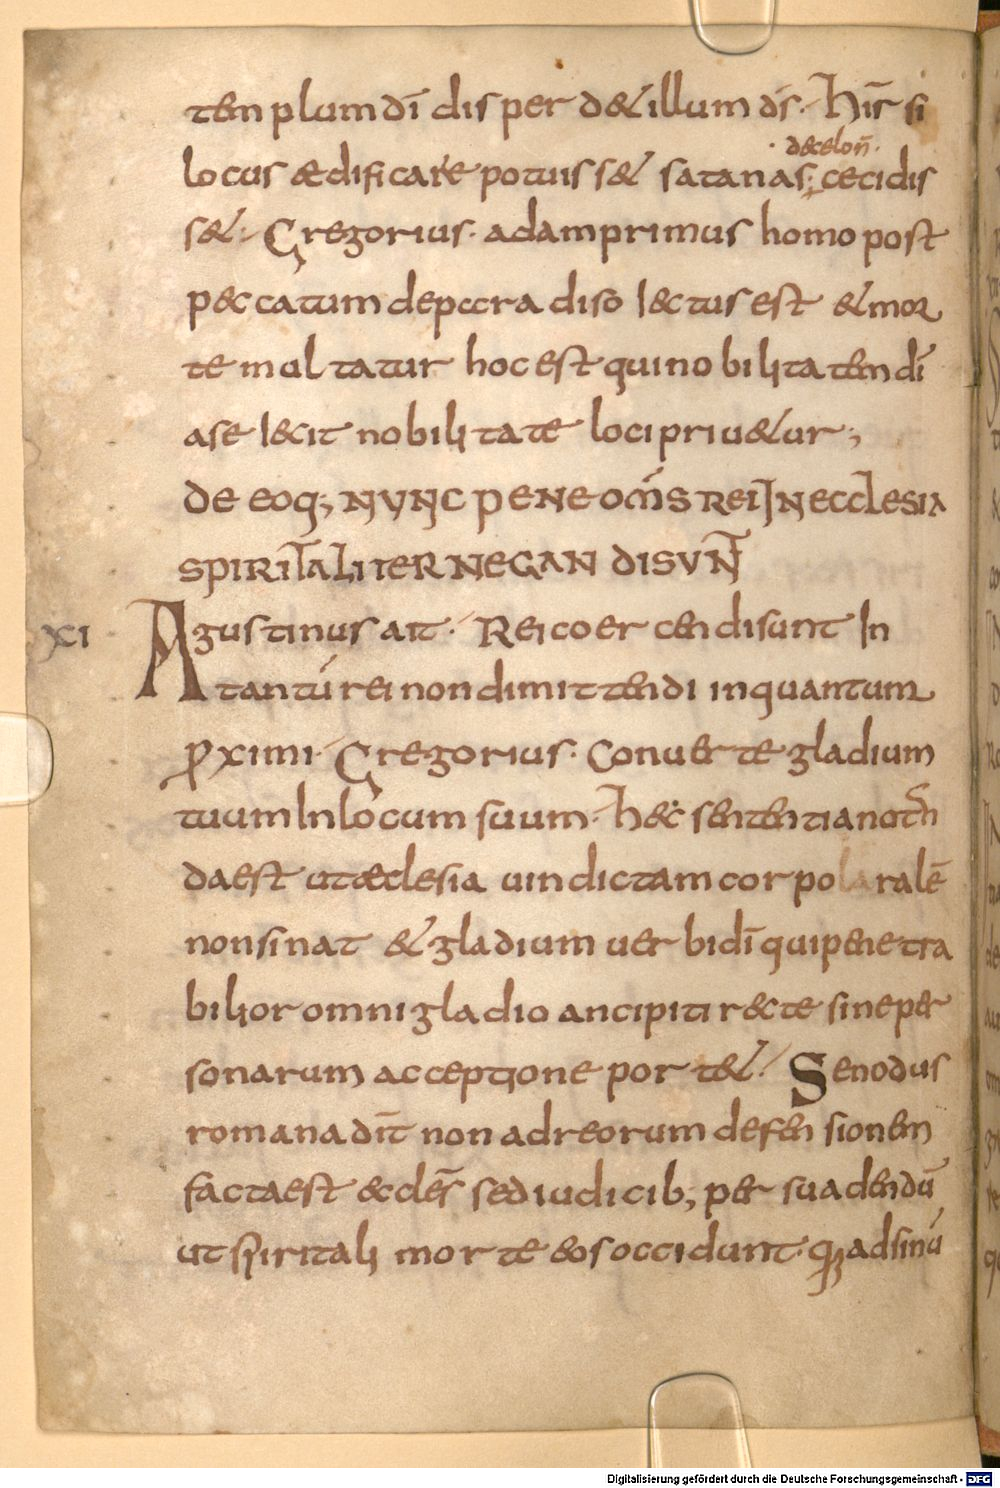 templum dī disperdet illum ds̄. Hir̄ si
decelon̄.
locus ædificare potuisset satanas, cecidis
set. Gregorius. adam primus homo post
peccatum de paradiso iectus est et mor
te multatur hoc est qui nobilitatem dī
a se iecit nobilitate loci priuetur;
DE EO Q; NVNC PENE OM̄S REI IN ECCLESIA
SPIRITALITER NEGANDI SVNT̄
XI Agustinus ait. Rei coercendi sunt In
tantū rei non dimittendi in quantum
ꝓximi. Gregorius. Conuerte gladium
tuum In locum suum. Hec sententia notan
da est ut æclesia uindictam corporalē
non sinat et gladium uerbi dī qui penetra
bilior omni gladio ancipiti recte sine per
sonarum acceptione portet. Senodus
romana dix̄ non ad reorum defensionem
facta est eccles̄ sed iudicib; persuadendū
ut spiritali morte eos occidunt. q; ad sinū
Digitalisierung gefördert durch die Deutsche Forschungsgemeinschaft - DFG